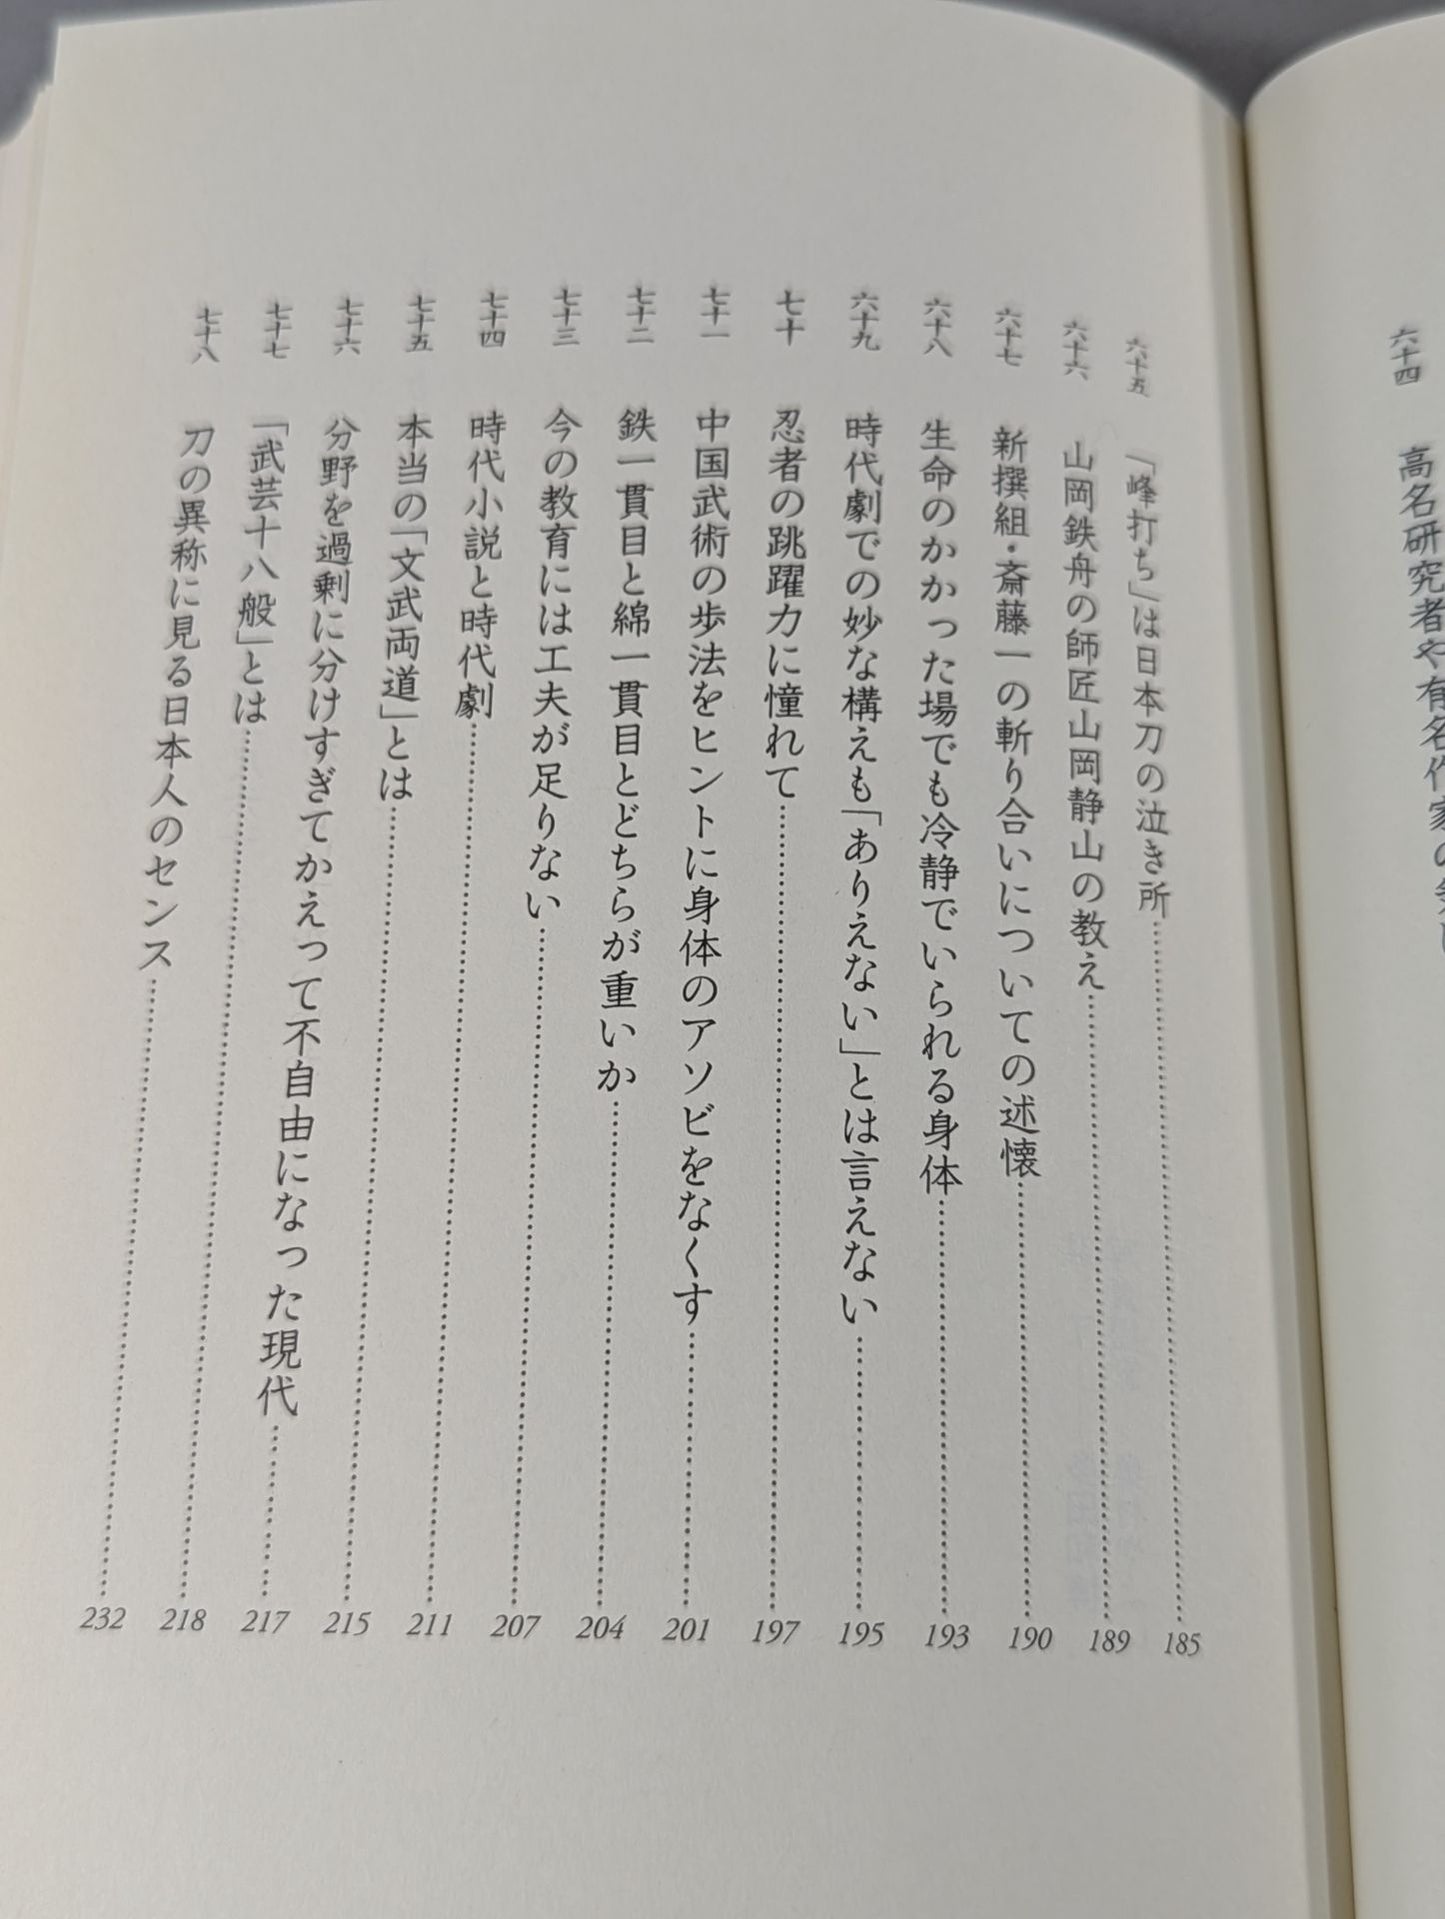 六十四 高名研究者や有名作家の
六十五 「峰打ち」は日本刀の泣き所 185
六十六 山岡鉄舟の師匠山岡静山の教え 189
六十七 新撰組・斎藤一の斬り合いについての述懐 190
六十八 生命のかかった場でも冷静でいられる身体 193
六十九 時代劇での妙な構えも「ありえない」とは言えない 195
七十 忍者の跳躍力に憧れて 197
七十一 中国武術の歩法をヒントに身体のアソビをなくす 201
七十二 鉄一貫目と綿一貫目とどちらが重いか 204
七十三 今の教育には工夫が足りない 207
七十四 時代小説と時代劇 211
七十五 本当の「文武両道」とは 215
七十六 分野を過剰に分けすぎてかえって不自由になった現代 217
七十七 「武芸十八般」とは 218
七十八 刀の異称に見る日本人のセンス 232